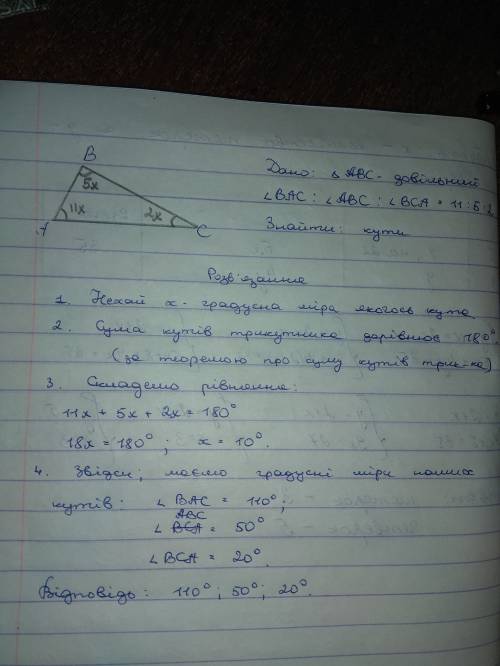 B
5x
A
11x
2x
C
Дано: △ABC - довільний
∠BAC : ∠ABC : ∠BCA = 11:5:2
Знайти: кути
Розв'язання
1. Нехай x - градусна міра якогось кута
2. Сума кутів трикутника дорівнює 180°.
(за теоремою про суму кутів трик-ка)
3. Складемо рівняння:
11x + 5x + 2x = 180°
18x = 180° ; x = 10°.
4. Звідси, маємо градусні міри наших
кутів: ∠BAC = 110°;
ABC
∠BCA = 50°
∠BCA = 20°.
Відповідь: 110°; 50°; 20°.